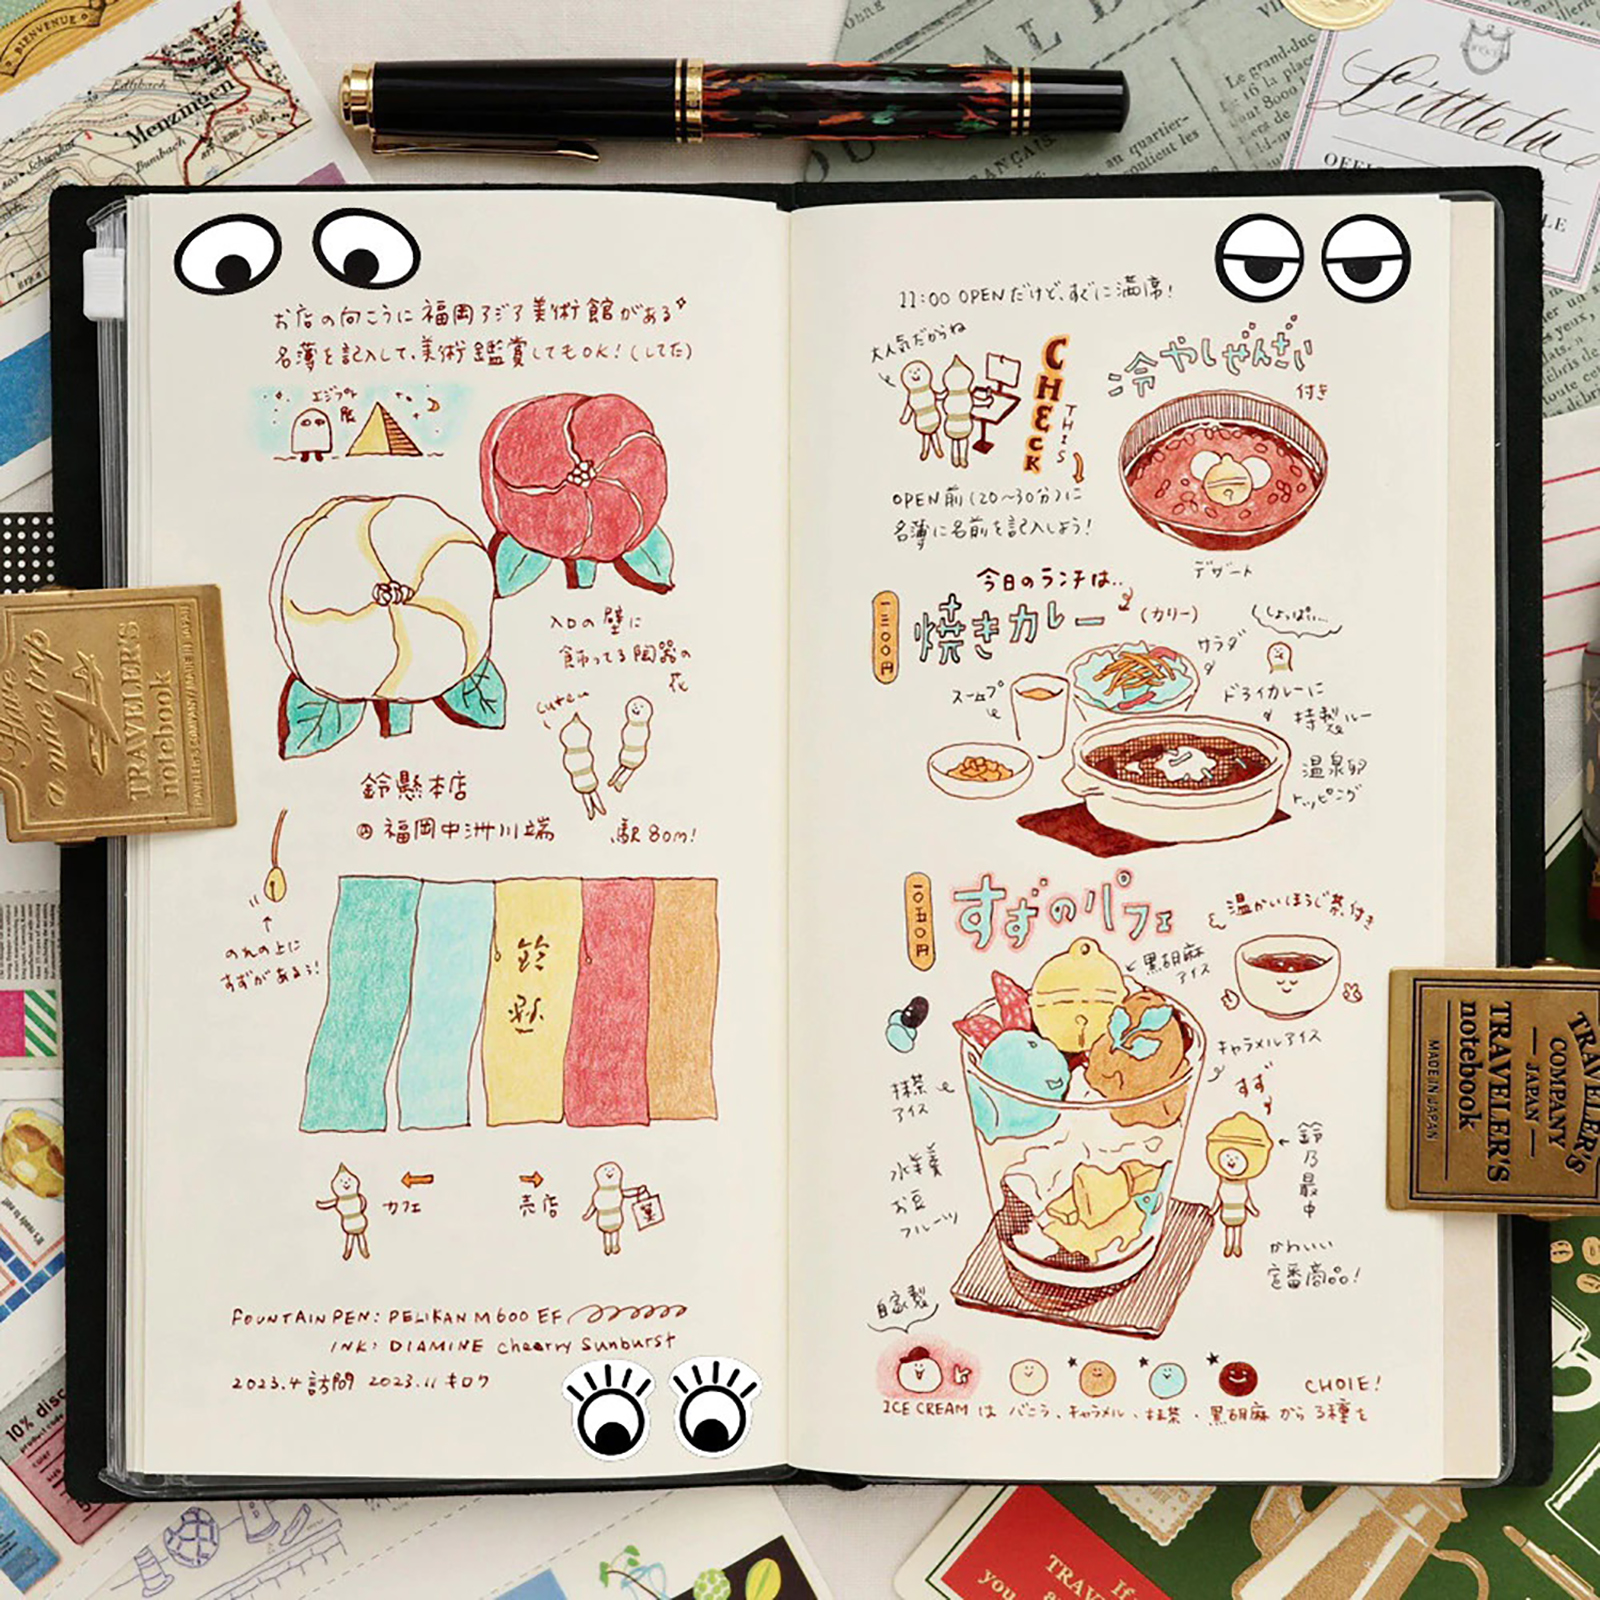 BIENVENUE
Edlibach
Menzingen
Schwand
Bumbach
Le grand-duc
de 16 la place
dont 8000
FRANÇAIS
au quartier-
contient les
Little tu
お店の向こうに福岡アジア美術館がある
名簿を記入して、美術鑑賞してもOK!(してた)
エジプト
展
入口の壁に
飾ってる陶器の
花
鈴懸本店
福岡中洲川端
駅80m!
のれんの上に
すずがあるよ!
鈴
懸
カフェ
売店
菓
FOUNTAIN PEN: PELIKAN M600 EF
INK: DIAMINE cheerry Sunburst
2023.4 訪問 2023.11 キロク
11:00 OPENだけど、すぐに満席!
大人気だからね
CHECK
THIS
冷やしぜんざい
付き
デザート
OPEN前(20~30分)に
名簿に名前を記入しよう!
今日のランチは..
一三〇〇円
焼きカレー
(カリー)
しょっぱい...
サラダ
スープ
ドライカレーに
特製ルー
温泉卵
トッピング
一〇五〇円
すずのパフェ
温かいほうじ茶付き
黒胡麻
アイス
キャラメルアイス
抹茶
アイス
すず
鈴乃最中
水羊羹
お豆
フルーツ
かわいい
定番商品!
自家製
CHOIE!
ICE CREAM は バニラ、キャラメル、抹茶、黒胡麻から3種を
Have
a nice trip
TRAVELER'S
notebook
TRAVELER'S COMPANY MADE IN JAPAN
TRAVELER'S
COMPANY
JAPAN
TRAVELER'S
notebook
MADE IN JAPAN
10% disc
product code
It's ready to eat!
If
TRAV
you